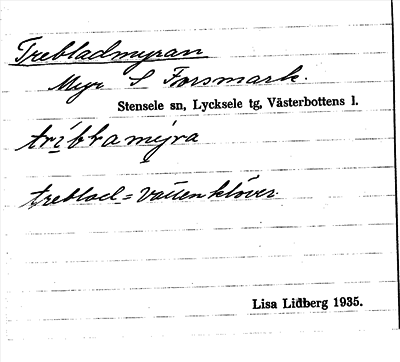 Trebladmyran
Myr S Forsmark.
Stensele sn, Lycksele tg, Västerbottens l.
treblad = vattenklöver.
Lisa Lidberg 1935.